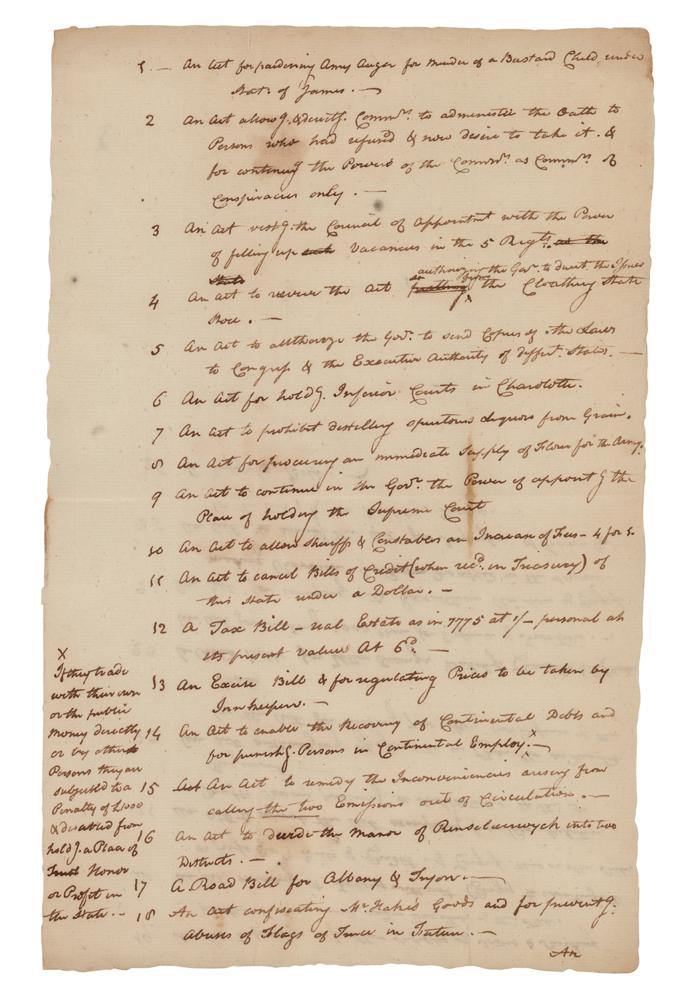 1. — An Act for pardoning Amy Auger for Murder of a Bastard Child, under
State of James. —
2 An Act allow.g & direct.g Comm.rs to administer the Oath to
Persons who had refused & now desire to take it. &
for continu.g the Powers of the Comm.rs as Comm.rs of
Conspiracies only. —
3 An Act vest.g the Council of Appointment with the Power
of filling up such Vacancies in the 5 Regts. at the
State
authorizing the Gov.r to direct the Issues
from
4 An act to revive the Act X the Cloathing State
Store. —
5 An Act to authorize the Gov.r to send Copies of the Laws
to Congress & the Executive Authority of differt. States. —
6 An Act for hold.g Inferior Courts in Charlotte.
7 An Act to prohibit distilling spirituous Liquors from Grain.
8 An Act for procuring an immediate Supply of Flour for the Army.
9 An Act to continue in the Gov.r the Power of appoint.g the
Place of holding the Supreme Court
10 An Act to allow Sheriffs & Constables an Increase of Fees – 4 for 1.
11 An Act to cancel Bills of Credit (when rec.d in Treasury) of
this State under a Dollar. —
12 A Tax Bill – real Estate as in 1775 at 1/– personal at
its present value At 6.d —
13 An Excise Bill & for regulating Prices to be taken by
Innkeepers. —
14 An Act to enable the Recovery of Continental Debts and
for punish.g Persons in Continental Employ. X —
15 Act An Act to remedy the Inconveniencies arising from
calling the two Emissions out of Circulation. —
16 An Act to divide the Manor of Renselaerwyck into two
Districts. —
17 A Road Bill for Albany & Tryon. —
18 An Act confiscating Mr. Hake's Goods and for prevent.g
Abuses of Flags of Truce in Future. —
An
X
If they trade
with their own
or the public
Money directly
or by other
Persons they are
subjected to a
Penalty of
& disabled from
hold.g a Place of
Trust Honor
or Profit in
the State. –